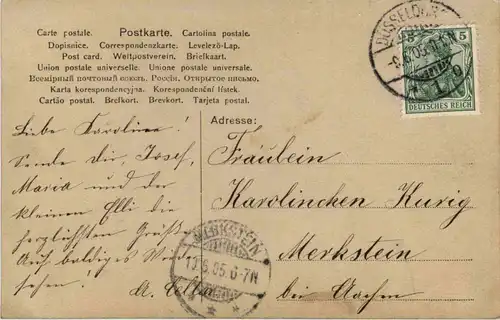 Carte postale. Postkarte. Cartolina postale.
Dopisnice. Correspondenzkarte. Levelező-Lap.
Post card. Weltpostverein. Briefkaart.
Union postale universelle. Unione postale universale.
Всемірный почтовый союзъ. Россія. Открытое письмо.
Karta korespondencyjna. Korespondenční lístek.
Cartão postal. Brefkort. Brevkort. Tarjeta postal.
Liebe Karoline!
Sende dir, Josef,
Maria und der
kleinen Elli die
herzlichsten Grüße
Auf baldiges Wieder-
sehen!
Adresse:
Fräulein
Karolinchen Kurig
Merkstein
bei Aachen
5
DEUTSCHES REICH
DÜSSELDORF
MERKSTEIN
10.6.05.6-7N